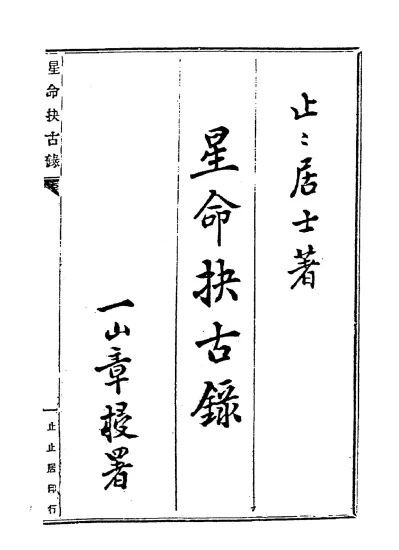 止〻居士著
星命抉古錄
一山章梫署
星命抉古錄
一止止居印行